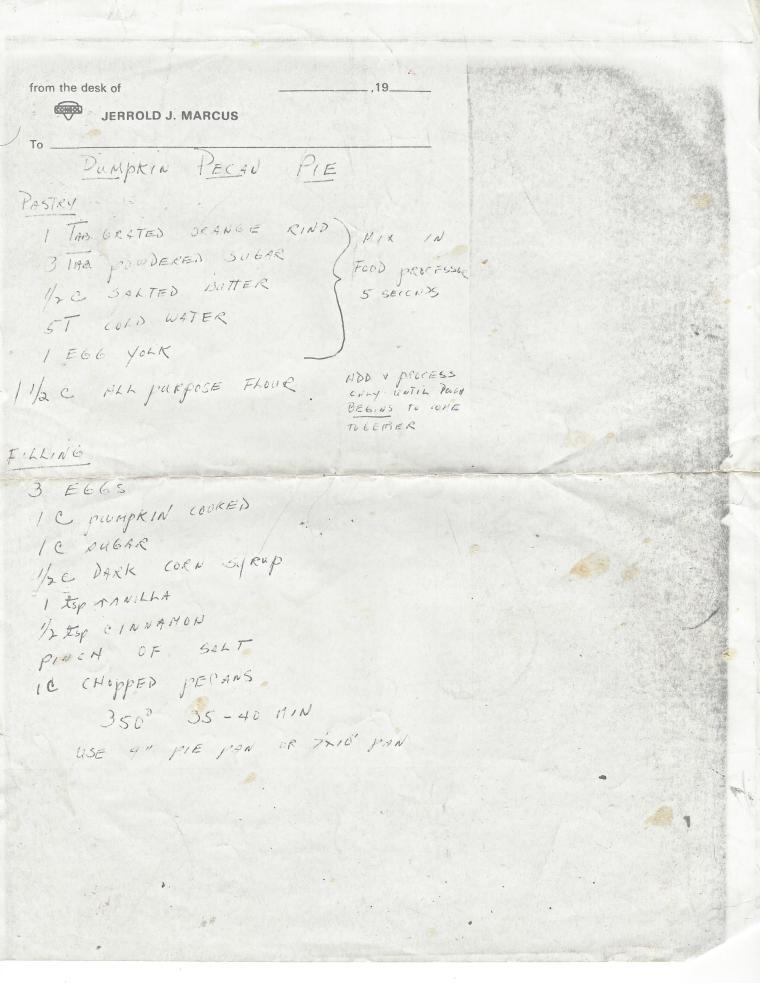 from the desk of
____________,19____
CONSOL
JERROLD J. MARCUS
To
PUMPKIN PECAN PIE
PASTRY
1 TAB GRATED ORANGE RIND
3 TAB POWDERED SUGAR
1/2 C SALTED BUTTER
5T COLD WATER
1 EGG YOLK
MIX IN
FOOD PROCESSOR
5 SECONDS
1 1/2 C ALL PURPOSE FLOUR
ADD & PROCESS
ONLY UNTIL DOUGH
BEGINS TO COME
TOGETHER
FILLING
3 EGGS
1 C PUMPKIN COOKED
1 C SUGAR
1/2 C DARK CORN SYRUP
1 tsp VANILLA
1/2 tsp CINNAMON
PINCH OF SALT
1C CHOPPED PECANS
350° 35-40 MIN
USE 9" PIE PAN OR 7x10" PAN